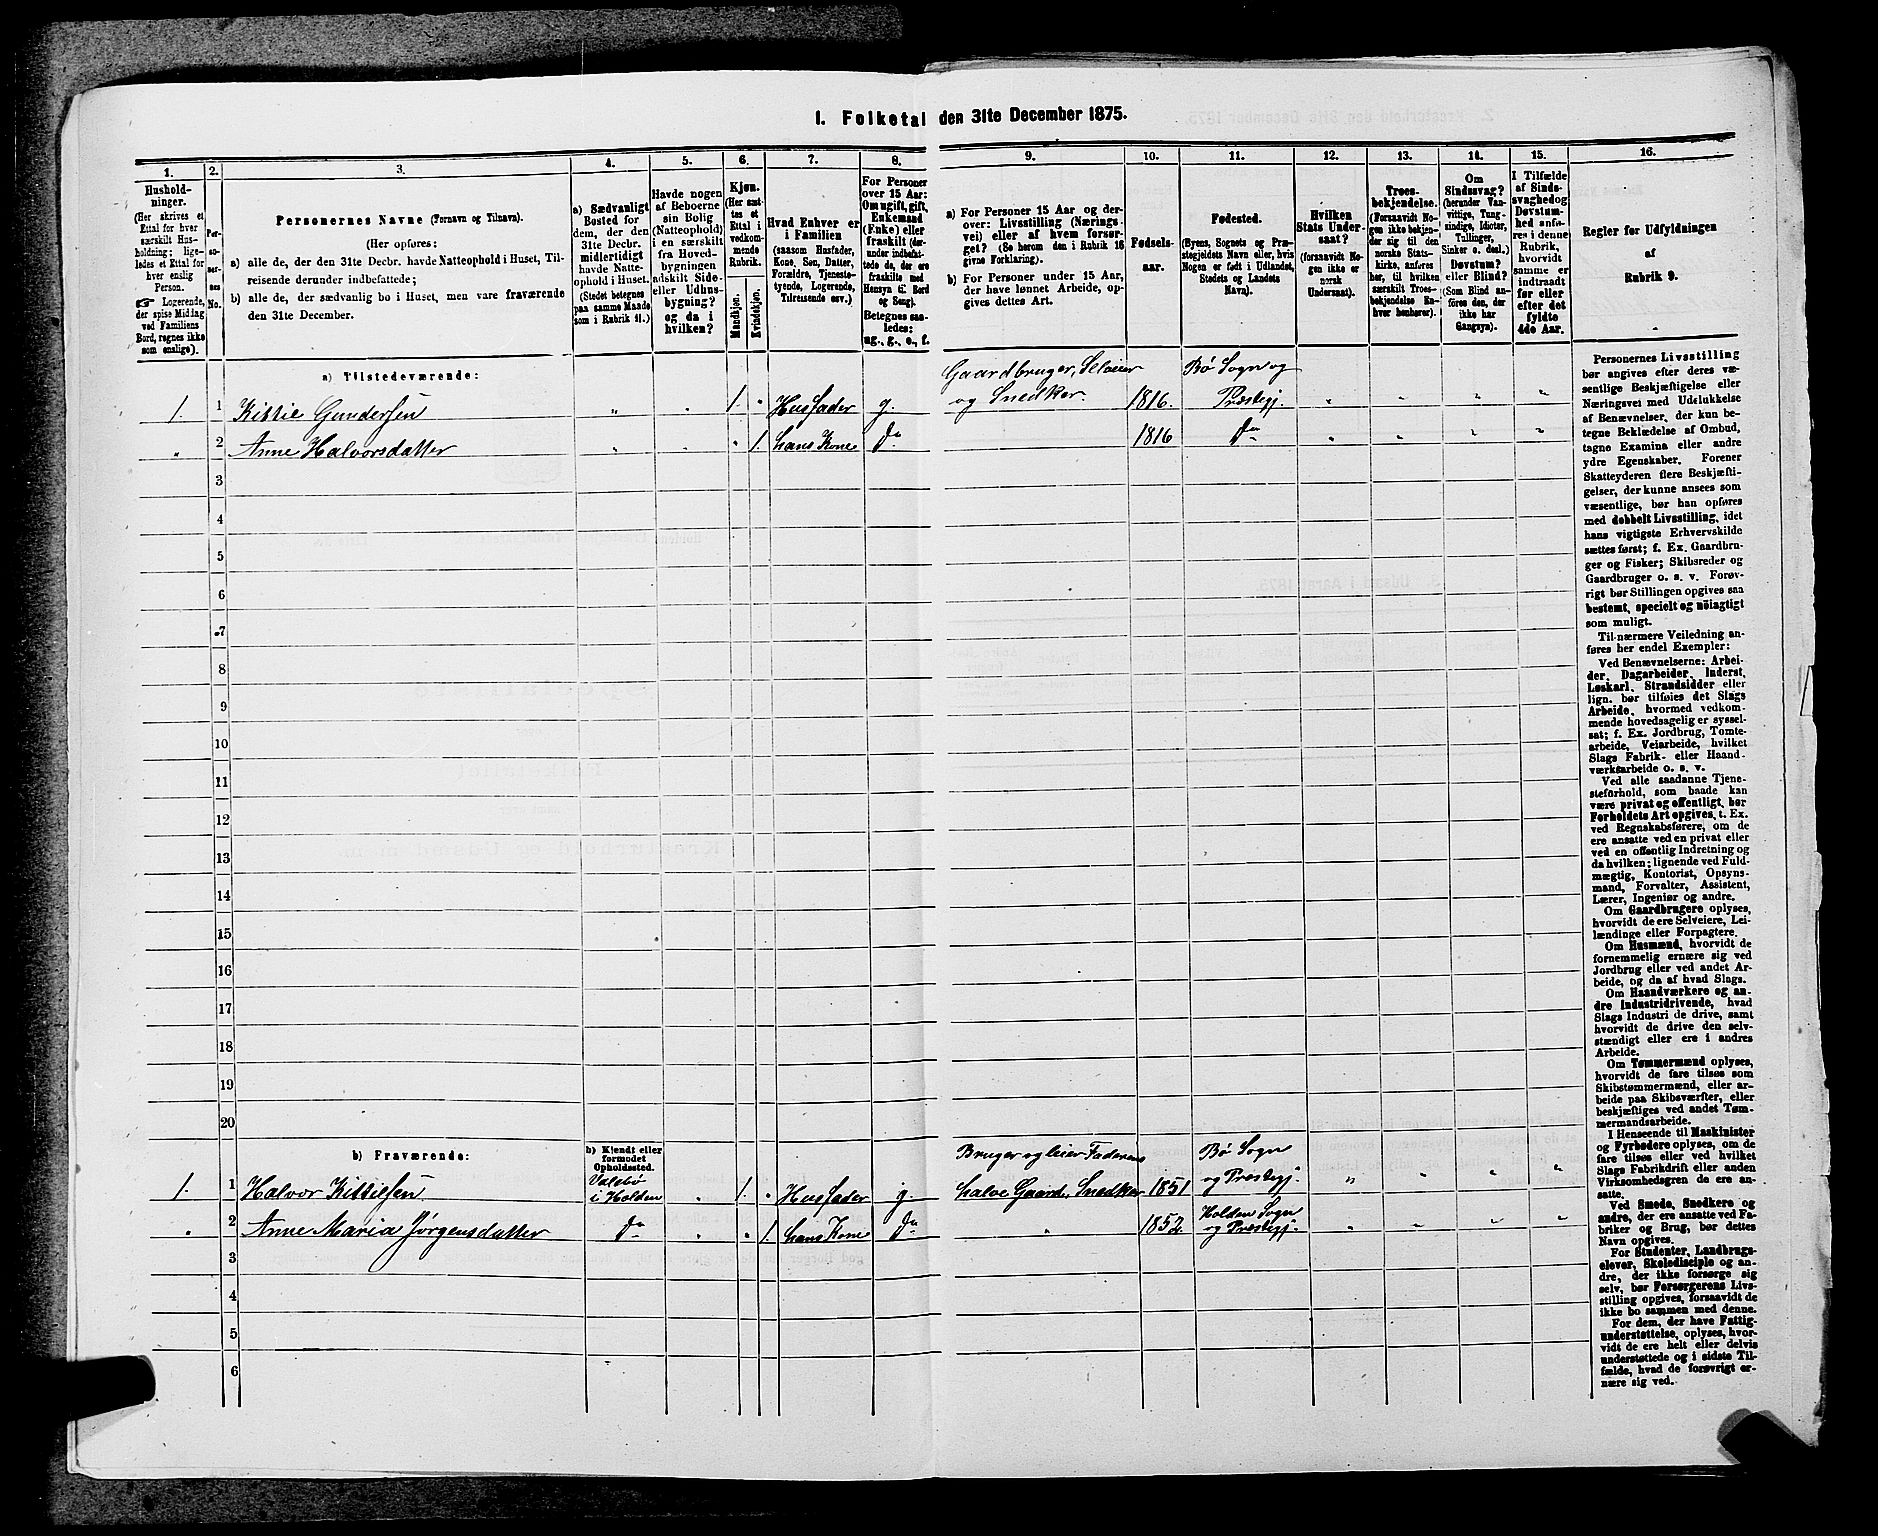 I. Folketal den 31te December 1875.
1. 2. 3. 4. 5. 6. 7. 8. 9. 10. 11. 12. 13. 14. 15. 16.
Hushold-
ninger.
(Her skrives et
Ettal for hver
særskilt Hus-
holdning; lige-
ledes et Ettal for
hver enslig
Person.
☞ Logerende,
der spise Middag
ved Familiens
Bord, regnes ikke
som enslige).
Per-
so-
ner-
nes
No.
Personernes Navne (Fornavn og Tilnavn).
(Her opføres:
a) alle de, der den 31te Decbr. havde Natteophold i Huset, Til-
reisende derunder indbefattede;
b) alle de, der sædvanlig bo i Huset, men vare fraværende
den 31te December.
a) Sædvanligt
Bosted for
dem, der den
31te Decbr.
midlertidigt
havde Natte-
ophold i Huset.
(Stedet betegnes
paa samme Maade
som i Rubrik 11.)
Havde nogen
af Beboerne
sin Bolig
(Natteophold)
i en særskilt
fra Hoved-
bygningen
adskilt Side-
eller Udhus-
bygning?
og da i
hvilken?
Kjøn.
(Her sæt-
tes et
Ettal i
vedkom-
mende
Rubrik.
Mandkjøn.
Kvindekjøn.
Hvad Enhver er
i Familien
(saasom Husfader,
Kone, Søn, Datter,
Forældre, Tjeneste-
tyende, Logerende,
Tilreisende osv.)
For Personer
over 15 Aar:
Om ugift, gift,
Enkemand
(Enke) eller
fraskilt (der-
under indbefat-
tede de, der ere
fraskilte med
Hensyn til Bord
og Seng).
Betegnes saa-
ledes:
ug., g., e., f.
a) For Personer 15 Aar og der-
over: Livsstilling (Nærings-
vei) eller af hvem forsør-
get? (Se herom den i Rubrik 16
givne Forklaring).
b) For Personer under 15 Aar,
der have lønnet Arbeide, op-
gives dettes Art.
Fødsels-
aar.
Fødested.
(Byens, Sognets og Præ-
stegjeldets Navn eller, hvis
Nogen er født i Udlandet,
Stedets og Landets
Navn).
Hvilken
Stats Under-
saat?
(forsaavidt No-
gen ikke er
norsk
Undersaat).
Troes-
bekjendelse.
(Forsaavidt No-
gen ikke bekjen-
der sig til den
norske Stats-
kirke, anføres
her, til hvilken
særskilt Troes-
bekjendelse En-
hver henhører).
Om
Sindssvag?
(herunder Van-
vittige, Tung-
sindige, Idioter,
Tullinger,
Sinker o. desl.)
Døvstum?
eller Blind?
(Som Blind an-
føres den, der
ikke har
Gangsyn).
I Tilfælde
af Sinds-
svaghed og
Døvstum-
hed anfø-
res i denne
Rubrik,
hvorvidt
samme er
indtraadt
før eller
efter det
fyldte
4de Aar.
Regler for Udfyldningen
af
Rubrik 9.
a) Tilstedeværende:
Gaardbruger, Seleier Bø Sogn og
1. 1 Kittil Gundersen " " 1. " Husfader g. og Snedker. 1816. Præstegj. " " " "
" 2 Anne Halvorsdatter " " " 1. hans Kone do 1816 do " " " "
3
4
5
6
7
8
9
10
11
12
13
14
15
16
17
18
19
20
b) Fraværende:
b) Kjendt eller
formodet
Opholdssted.
Bruger og leier Faderens Bø Sogn
1. 1 Halvor Kittilsen Valebø i Holden " 1. " Husfader g. halve Gaard, Snedker 1851 og Præstegj. " " " "
" 2 Anne Maria Jørgensdatter do " " 1. hans Kone do " 1852 Holden Sogn og Præstegj. " " " "
3
4
5
6
Personernes Livsstilling
bør angives efter deres væ-
sentlige Beskjæftigelse eller
Næringsvei med Udelukkelse
af Benævnelser, der kun be-
tegne Beklædelse af Ombud,
tagne Examina eller andre
ydre Egenskaber. Forener
Skatteyderen flere Beskjæfti-
gelser, der kunne ansees som
væsentlige, bør han opføres
med dobbelt Livsstilling, idet
hans vigtigste Erhvervskilde
sættes først; f. Ex. Gaardbru-
ger og Fisker; Skibsreder og
Gaardbruger o. s. v. Forøv-
rigt bør Stillingen opgives saa
bestemt, specielt og nöiagtigt
som muligt.
Til nærmere Veiledning an-
føres her endel Exempler:
Ved Benævnelserne: Arbei-
der, Dagarbeider, Inderst,
Løskarl, Strandsidder eller
lign. bør tilføies det Slags
Arbeide, hvormed vedkom-
mende hovedsagelig er syssel-
sat; f. Ex. Jordbrug, Tomte-
arbeide, Veiarbeide, hvilket
Slags Fabrik- eller Haand-
værksarbeide o. s. v.
Ved alle saadanne Tjene-
steforhold, som baade kan
være privat og offentligt, bør
Forholdets Art opgives, t. Ex.
ved Regnskabsførere, om de
ere ansatte ved en privat eller
ved en offentlig Indretning og
da hvilken; lignende ved Fuld-
mægtig, Kontorist, Opsyns-
mand, Forvalter, Assistent,
Lærer, Ingeniør og andre.
Om Gaardbrugere oplyses,
hvorvidt de ere Selveiere, Lei-
lændinge eller Forpagtere.
Om Husmænd, hvorvidt de
fornemmelig ernære sig ved
Jordbrug eller ved andet Ar-
beide, og da af hvad Slags.
Om Haandværkere og an-
dre Industridrivende, hvad
Slags Industri de drive, samt
hvorvidt de drive den selv-
stændigt eller ere i andres
Arbeide.
Om Tømmermænd oplyses,
hvorvidt de fare tilsøs som
Skibstømmermænd, eller ar-
beide paa Skibsværfter, eller
beskjæftiges ved andet Tøm-
mermandsarbeide.
I Henseende til Maskinister
og Fyrbødere oplyses, om de
fare tilsøs eller ved hvilket
Slags Fabrikdrift eller anden
Virksomhedsgren de ere an-
satte.
Ved Smede, Snedkere og
andre, der ere ansatte ved Fa-
briker og Brug, bør dettes
Navn opgives.
For Studenter, Landbrugs-
elever, Skoledisciple og an-
dre, der ikke forsørge sig
selv, bør Forsørgerens Livs-
stilling opgives, forsaavidt de
ikke bo sammen med denne.
For dem, der have Fattig-
understøttelse, oplyses, hvor-
vidt de ere helt eller delvis
understøttede og i sidste Til-
fælde, hvad de forøvrigt er-
nære sig ved.